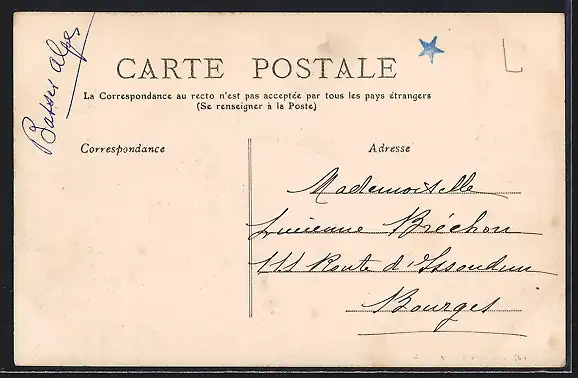 Basses Alpes
CARTE POSTALE
La Correspondance au recto n'est pas acceptée par tous les pays étrangers
(Se renseigner à la Poste)
Correspondance
Adresse
Mademoiselle
Lucienne Bréchon
111 Route d'Issoudun
Bourges
L